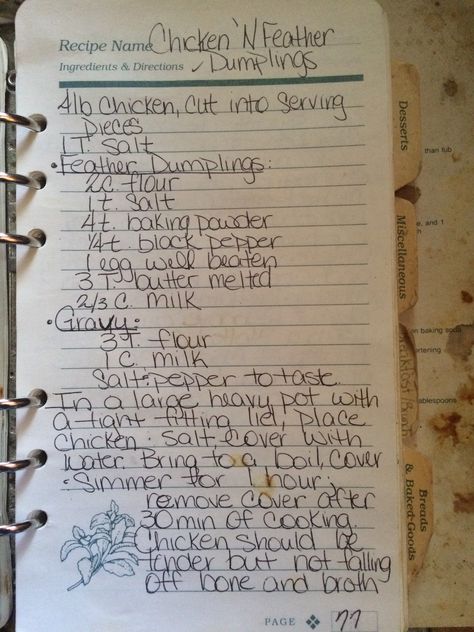 Recipe Name Chicken 'N Feather
Ingredients & Directions Dumplings
4lb Chicken, cut into serving
pieces
1 T. salt
• Feather Dumplings:
2 C. flour
1 t. salt
4 t. baking powder
1/4 t. black pepper
1 egg well beaten
3 T. butter melted
2/3 C. milk
• Gravy:
3 T. flour
1 C. milk
Salt & pepper to taste
In a large heavy pot with
a tight fitting lid, place
chicken & salt. Cover with
water. Bring to a boil, cover
& simmer for 1 hour;
remove cover after
30 min of cooking.
Chicken should be
tender but not falling
off bone and broth
PAGE 77
Desserts
Miscellaneous
Breads
& Baked-Goods
than tub
e, and 1
on baking soda
ortening
ablespoons